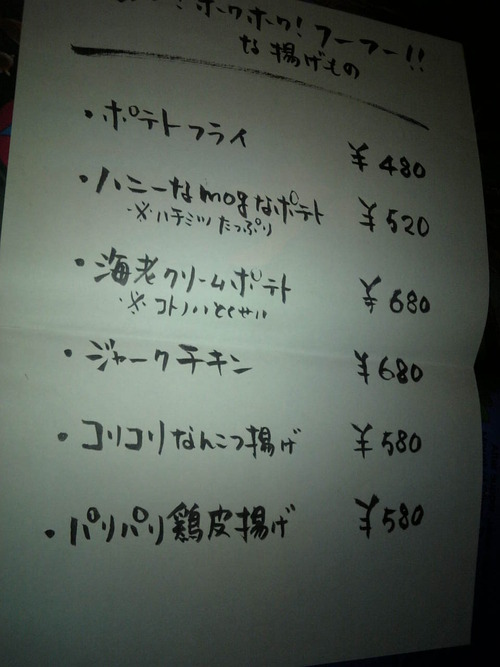 ホクホク! フーフー!!
な揚げもの
・ポテトフライ ¥480
・ハニーなmogなポテト ¥520
※ハチミツたっぷり
・海老クリームポテト ¥680
※コトノハとくせい
・ジャークチキン ¥680
・コリコリなんこつ揚げ ¥580
・パリパリ鶏皮揚げ ¥580